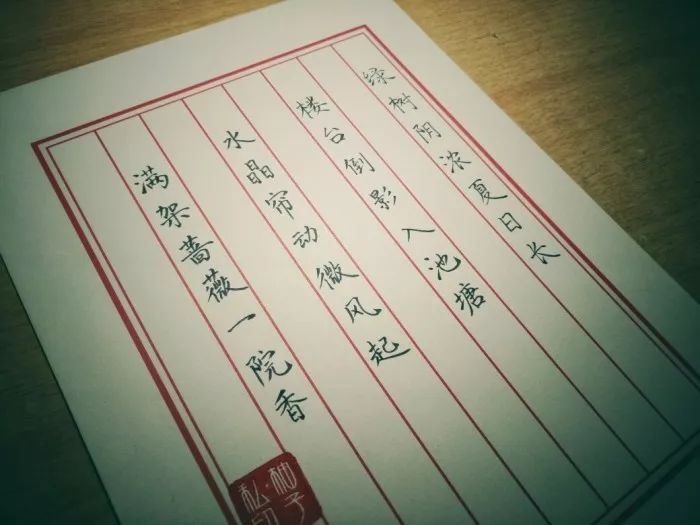 绿树阴浓夏日长
楼台倒影入池塘
水晶帘动微风起
满架蔷薇一院香
柚子
私印